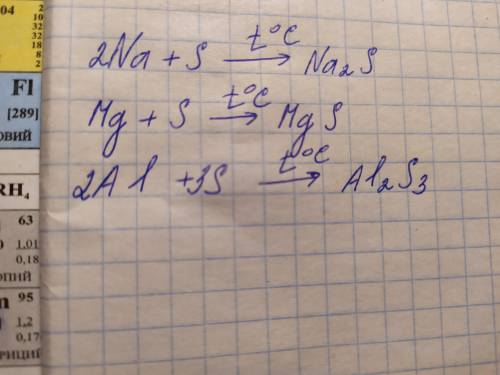 04
2
10
32
32
18
8
2
Fl
[289]
ОВИЙ
RH₄
63
1,01
0,18
ОПИЙ
m 95
1,2
0,17
РИЦИЙ
2Na + S t°C → Na₂S
Mg + S t°C → MgS
2Al + 3S t°C → Al₂S₃